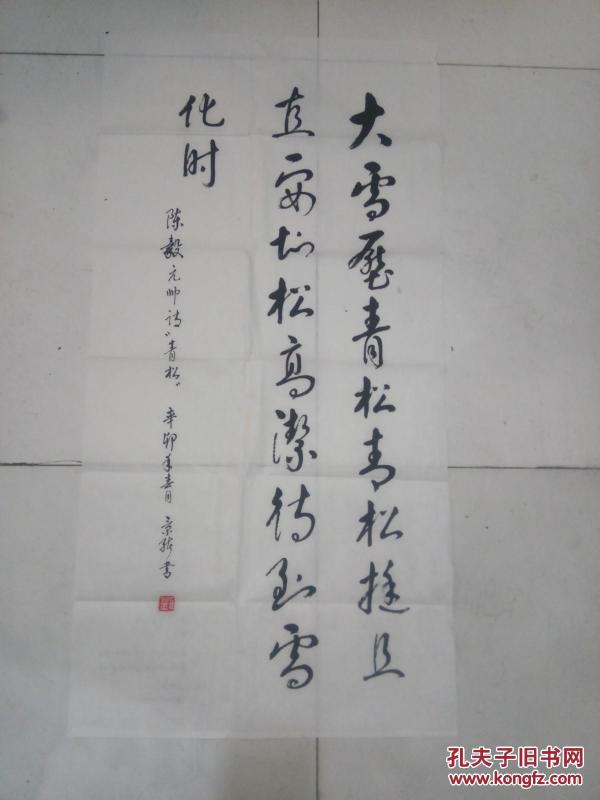 大雪壓青松青松挺且
直要知松高潔待到雪
化时
陈毅元帅诗“青松” 辛卯年春月 京强书
孔夫子旧书网
www.kongfz.com